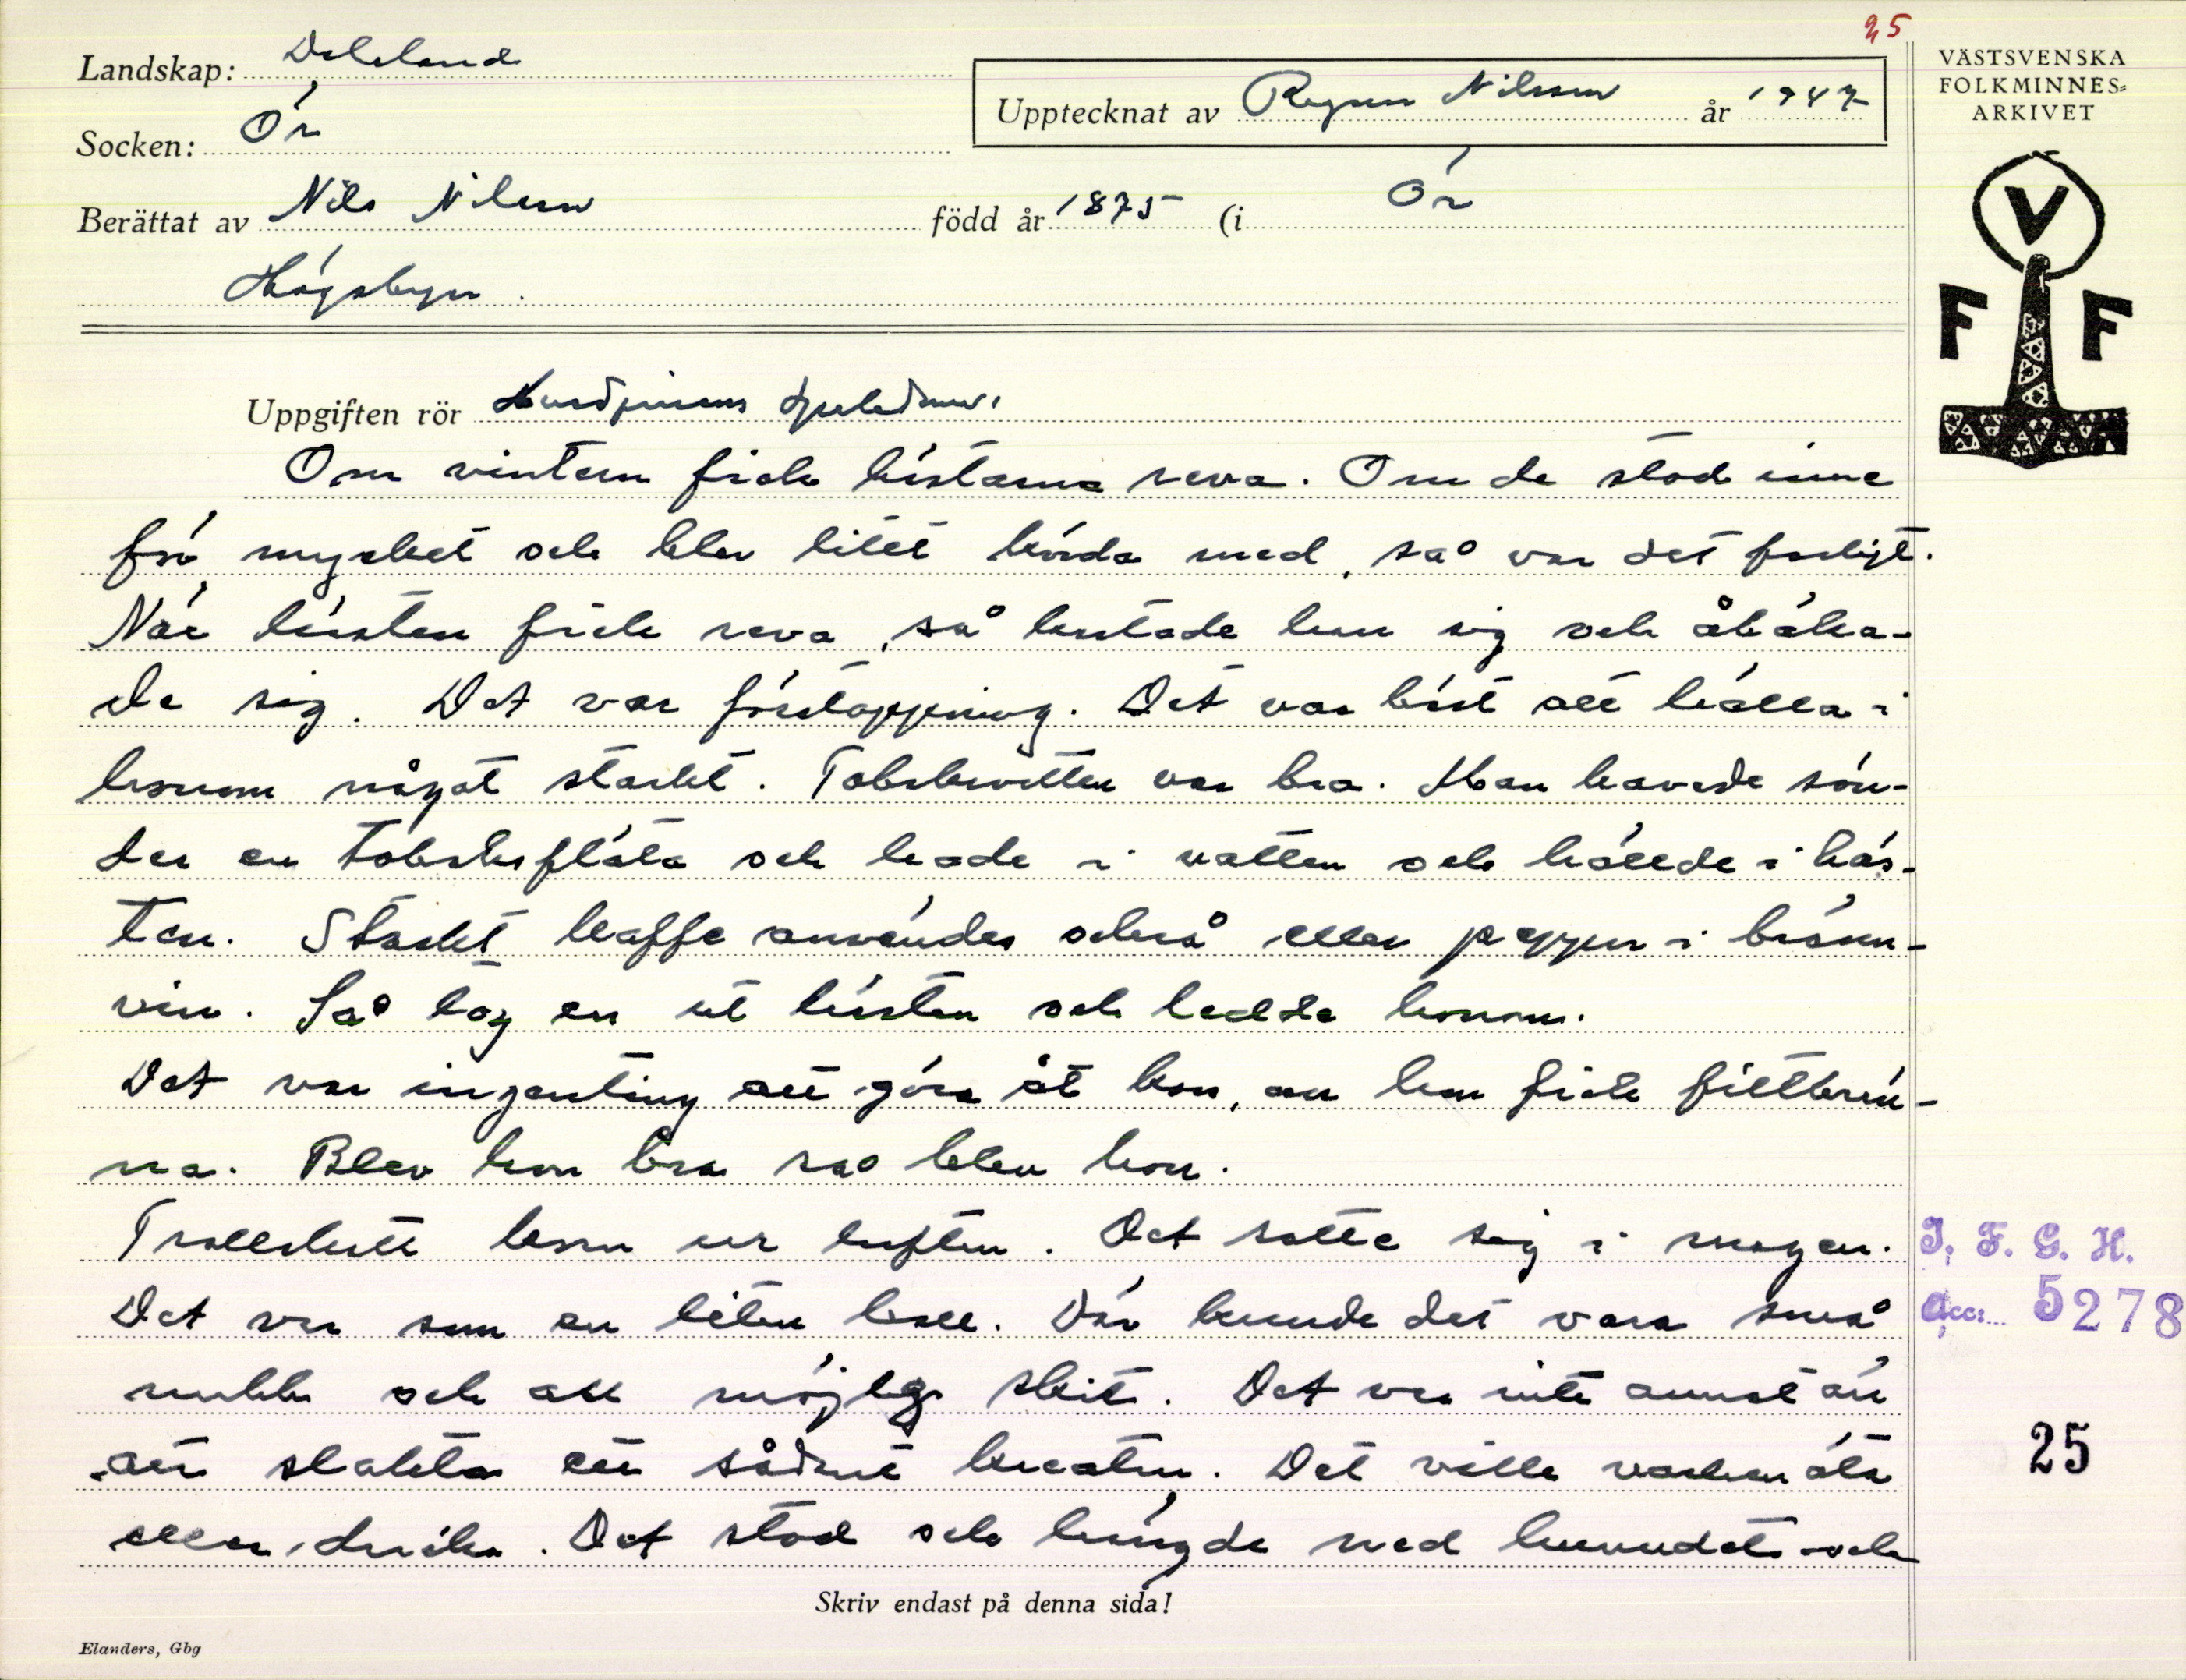 25
Landskap: Dalsland
Socken: Ör
Upptecknat av Ragnar Nilsson år 1947
VÄSTSVENSKA
FOLKMINNES-
ARKIVET
V
F F
Berättat av Nils Nilsson född år 1875 (i Ör
Högsbyn.
Uppgiften rör Husdjurens sjukdomar
Om vintern fick hästarna reva. Om de stod inne
för mycket och blev litet körda med, så var det farligt.
När hästen fick reva, så kastade han sig och åbäka-
de sig. Det var förstoppning. Det var bäst att hälla i
honom något starkt. Tobaksvatten var bra. Man karvade sön-
der en tobaksfläta och lade i vatten och hällde i häs-
ten. Starkt kaffe användes också eller peppar i bränn-
vin. Så tog en ut hästen och ledde honom.
Det var ingenting att göra åt kon, om hon fick
na. Blev hon bra så blev hon.
Trollskott kom ur luften. Det satte sig i magen.
Det var som en liten boll. Där kunde det vara små
nubb och all möjlig skit. Det var inte annat än
att slakta ett sådant kreatur. Det ville varken äta
eller dricka. Det stod och hängde med huvudet och
I. F. G. H.
Acc: 5278
25
Skriv endast på denna sida!
Elanders, Gbg